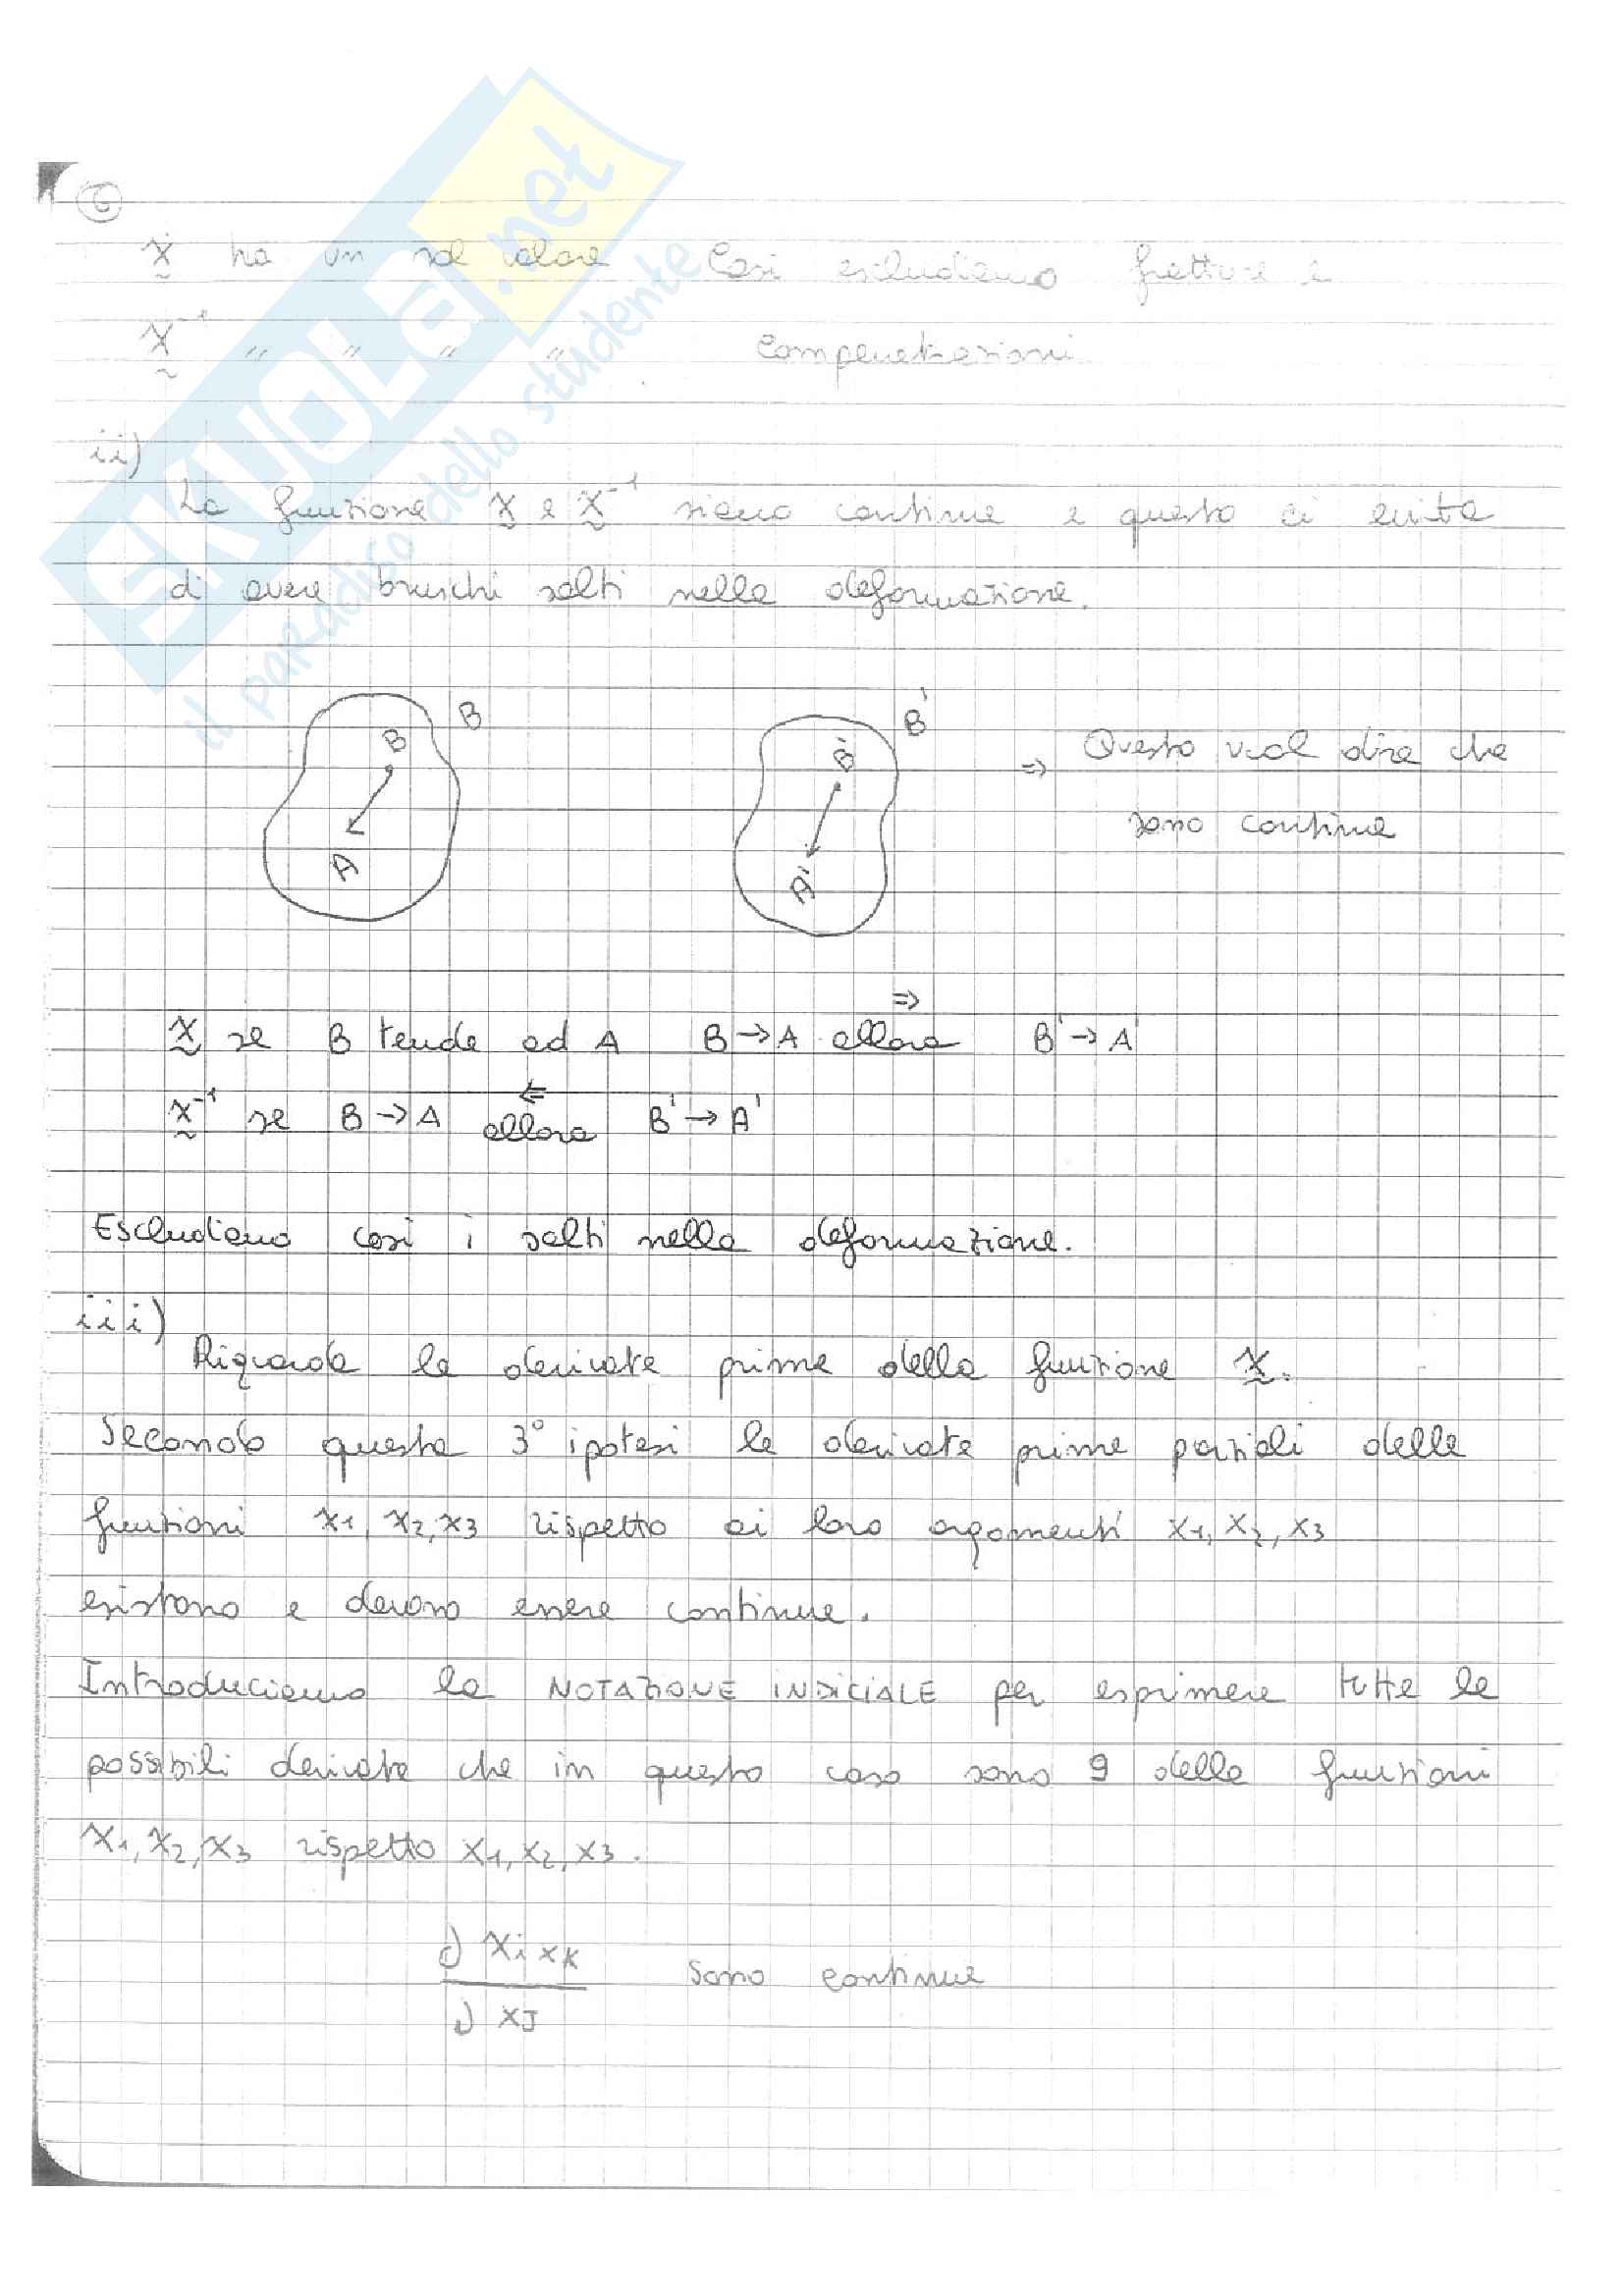 6
χ ha un sol valore Così escludiamo fratture e
χ⁻¹ " " " " compenetrazioni
ii)
La funzione χ e χ⁻¹ siano continue e questo ci evita
di avere bruschi salti nella deformazione.
B B B' B' ⇒ Questo vuol dire che
A A' sono continue
⇒
χ se B tende ad A B→A allora B'→A'
⇐
χ⁻¹ se B→A allora B'→A'
Escludiamo così i salti nella deformazione.
iii)
Riguarda le derivate prime della funzione χ.
Secondo questa 3° ipotesi le derivate prime parziali delle
funzioni χ1, χ2, χ3 rispetto ai loro argomenti x1, x2, x3
esistono e devono essere continue.
Introduciamo la NOTAZIONE INDICIALE per esprimere tutte le
possibili derivate che in questo caso sono 9 delle funzioni
χ1, χ2, χ3 rispetto x1, x2, x3.
∂ χi xk
sono continue
∂ xJ
SKUOLA.net
il paradiso dello studente